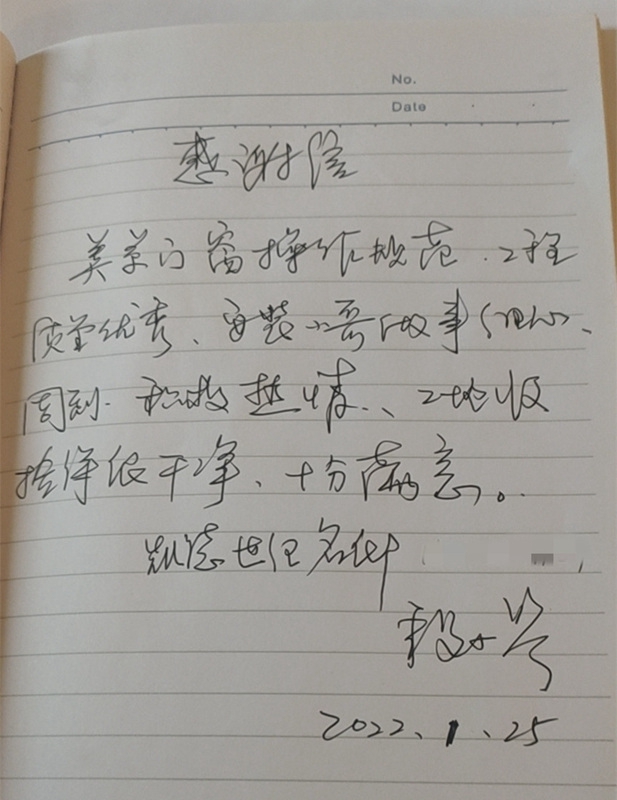 No.
Date
感谢信
美羊门窗操作规范、工程
质量优秀、安装小哥做事细心、
周到、积极热情、工地收
拾得很干净、十分满意。
凯德世纪名邸
2022.1.25